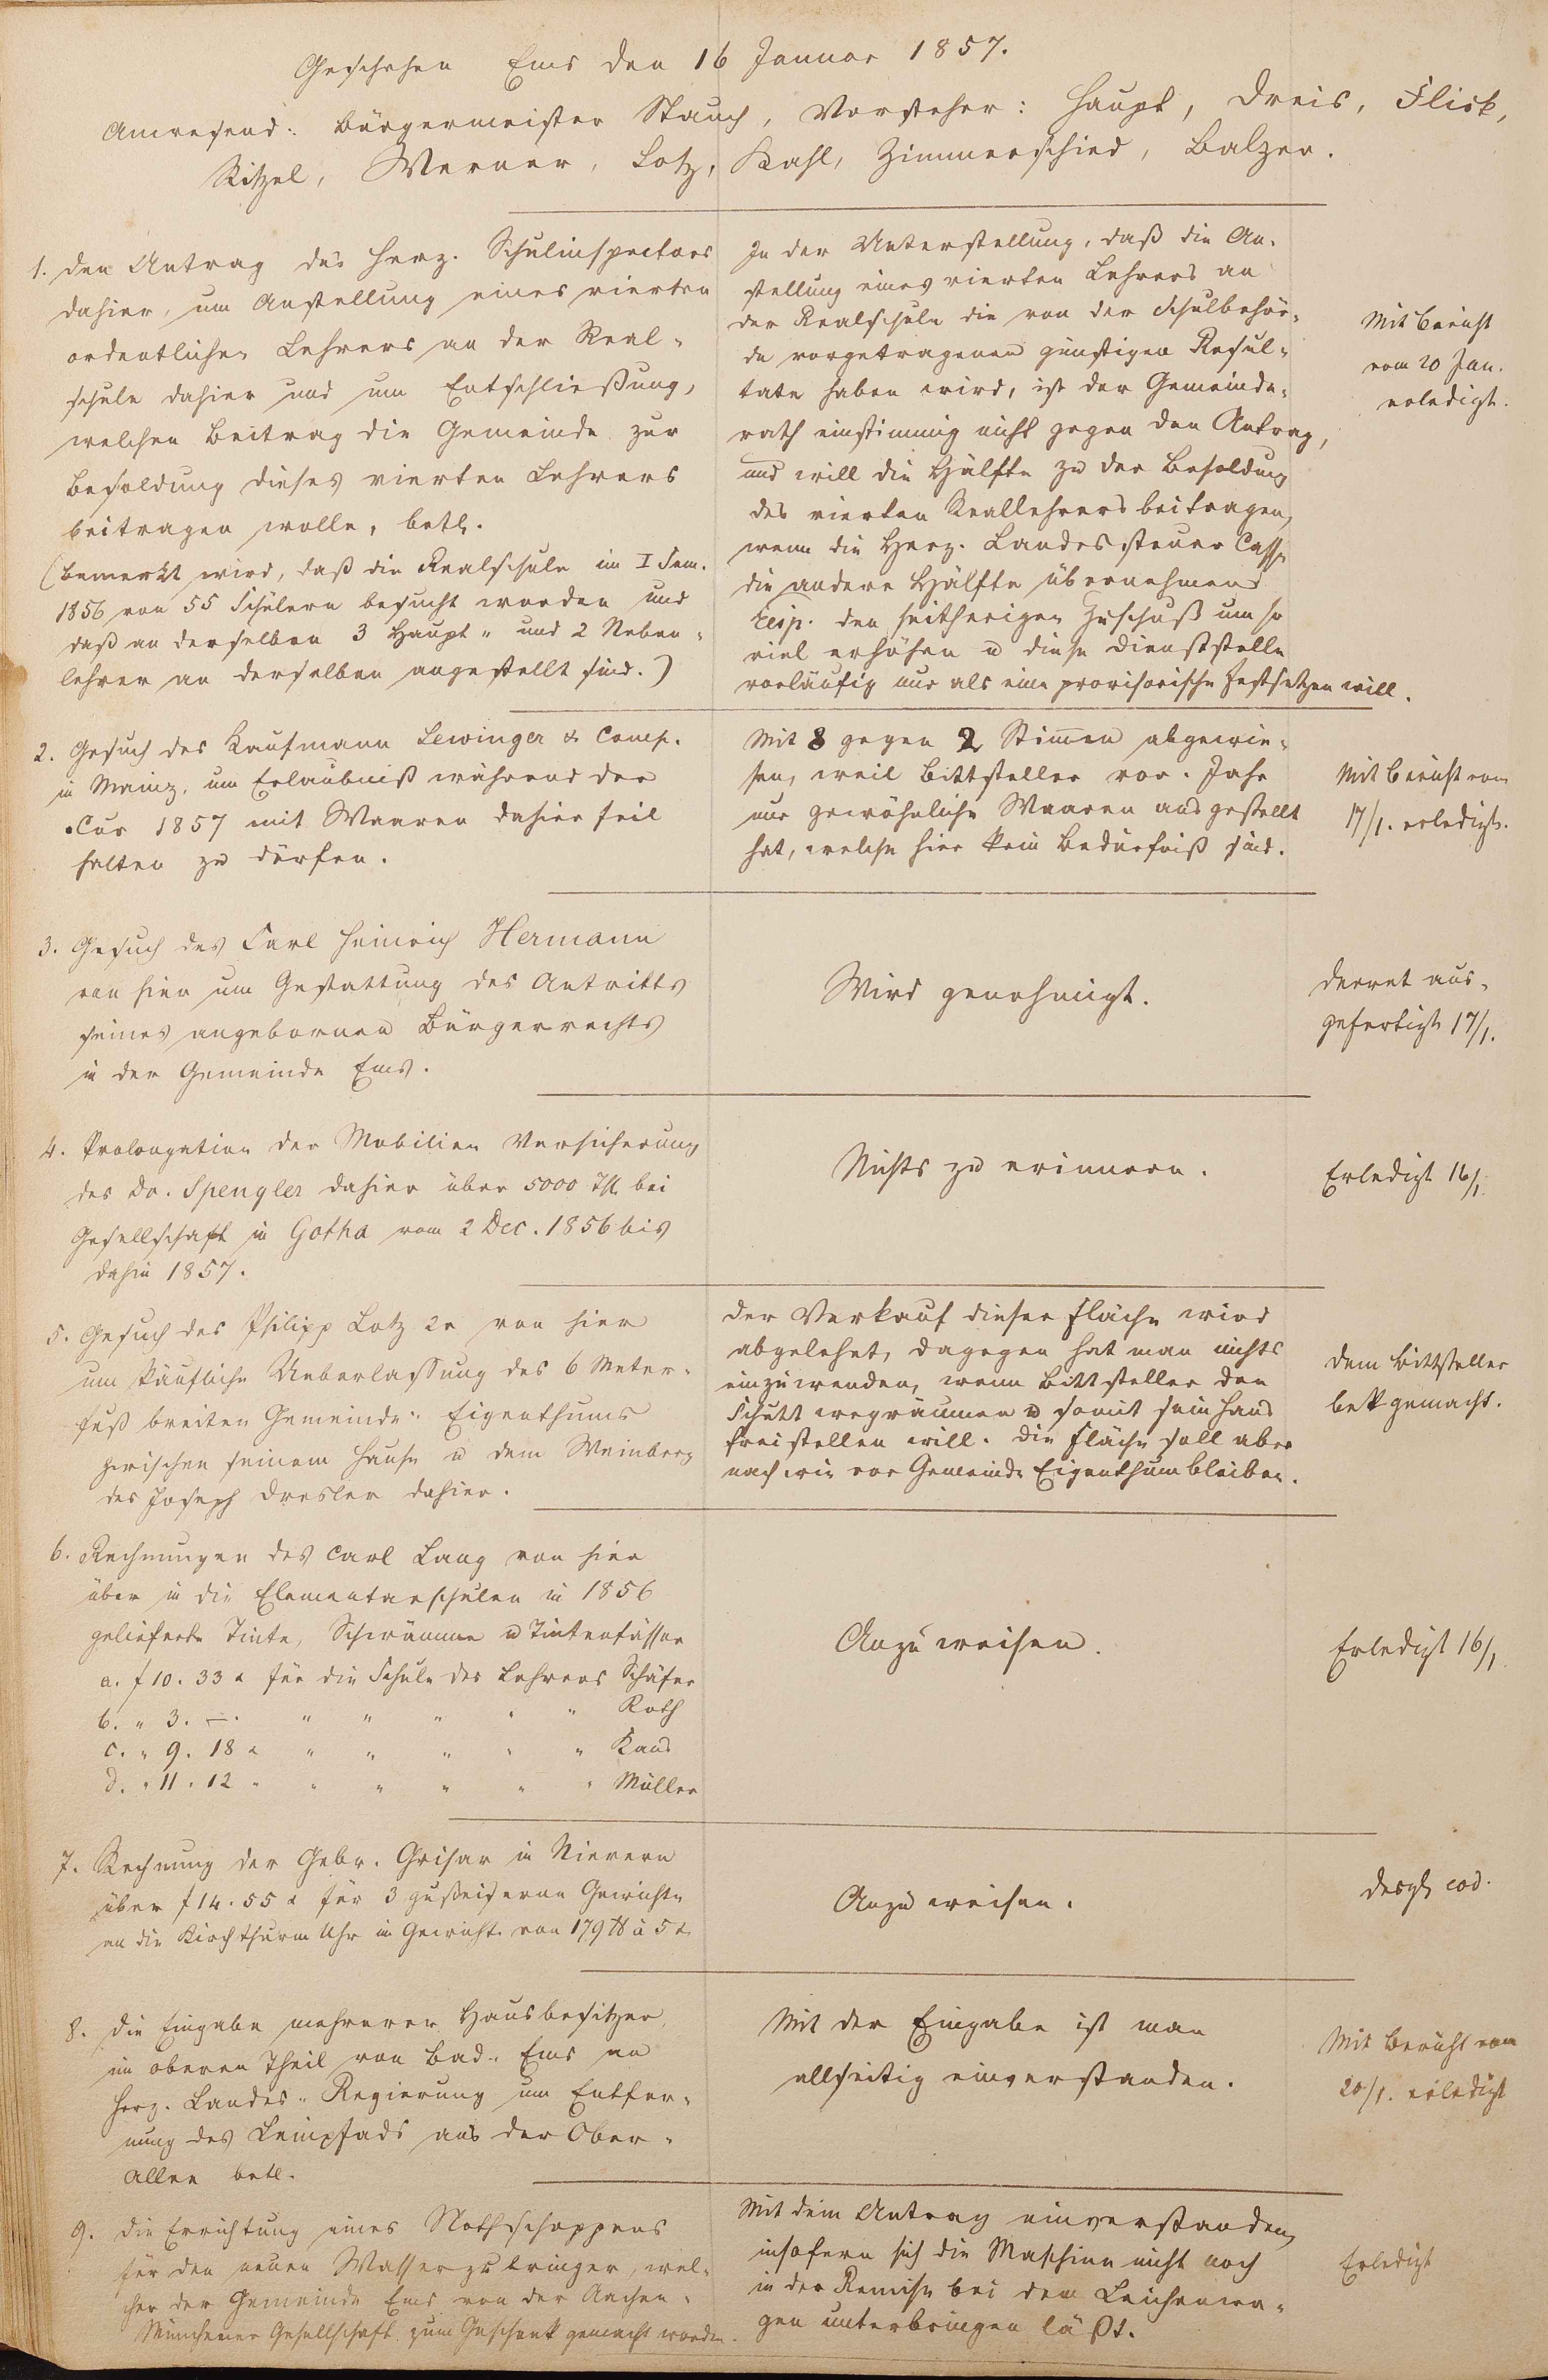 Geschehen Ems den 16 Januar 1857.
Anwesend: Bürgermeister Stauch, Vorsteher: Haupt, Dreis, Flick,
Kitzel, Werner, Lotz, Kahl, Zimmerschied, Balzer.
1. Den Antrag des Herz. Schulinspectors
dahier, um Anstellung eines vierten
ordentlichen Lehrers an der Real-
schule dahier und um Entschließung,
welchen Beitrag die Gemeinde zur
Besoldung dieses vierten Lehrers
beitragen wolle, betr.
(Bemerkt wird, daß die Realschule im I Sem.
1856 von 55 Schülern besucht worden und
daß an derselben 3 Haupt- und 2 Neben-
lehrer an derselben angestellt sind.)
In der Unterstellung, daß die An-
stellung eines vierten Lehrers an
der Realschule die von der Schulbehör-
de vorgetragenen günstigen Resul-
tate haben wird, ist der Gemeinde-
rath einstimmig nicht gegen den Antrag,
und will die Hälfte zu der Besoldung
des vierten Reallehrers beitragen,
wenn die Herz. Landessteuer Casse
die andere Hälfte übernehmen
resp. den seitherigen Zuschuß um so
viel erhöhen u diese Dienststelle
vorläufig nur als eine provisorische festsetzen will.
Mit Bericht
vom 20 Jan.
erledigt.
2. Gesuch des Kaufmann Lewinger & Comp.
in Mainz, um Erlaubniß während der
Cur 1857 mit Waaren dahier feil
halten zu dürfen.
Mit 8 gegen 2 Stimen abgewie-
sen, weil Bittsteller vor. Jahr
nur gewöhnliche Waaren ausgestellt
hat, welche hier kein Bedürfniß sind.
Mit Bericht vom
17/1. erledigt.
3. Gesuch des Carl Heinrich Hermann
von hier um Gestattung des Antritts
seines angebornen Bürgerrechts
in der Gemeinde Ems.
Wird genehmigt.
Decret aus-
gefertigt 17/1.
4. Prolongation der Mobilien Versicherung
des Dr. Spengler dahier über 5000 Thl. bei
Gesellschaft in Gotha vom 2 Dec. 1856 bis
dahin 1857.
Nichts zu erinnern.
Erledigt 16/1.
5. Gesuch des Philipp Lotz 2r von hier
um käufliche Ueberlassung des 6 Meter-
fuß breiten Gemeinde- Eigenthums
zwischen seinem Hause u dem Weinberg
des Joseph Dresler dahier.
Der Verkauf dieser Fläche wird
abgelehnt, dagegen hat man nichts
einzuwenden, wenn Bittsteller den
Schutt wegräumen u somit sein Haus
freistellen will. Die Fläche soll aber
nach wie vor Gemeinde Eigenthum bleiben.
Dem Bittsteller
bekt gemacht.
6. Rechnungen des Carl Lang von hier
über in die Elementarschulen in 1856
gelieferte Tinte, Schwämme u Tintenfässer
a. f 10. 33 x für die Schule des Lehrers Schäfer
b. " 3. —. " " " " " Roth
c. " 9. 18 x " " " " " Kaus
d. " 11. 12 " " " " " " Müller
Anzuweisen.
Erledigt 16/1.
7. Rechnung der Gebr. Grisar in Nievern
über f 14. 55 x für 3 gußeiserne Gewichte
an die Kirchthurm Uhr im Gewicht von 179 ℔ à 5 x.
Anzuweisen.
Desgl. eod.
8. Die Eingabe mehrerer Hausbesitzer
im oberen Theil von Bad- Ems an
Herz. Landes- Regierung um Entfer-
nung des Leinpfads aus der Ober-
Allee betr.
Mit der Eingabe ist man
allseitig einverstanden.
Mit Bericht vom
20/1. erledigt
9. Die Errichtung eines Nothschoppens
für den neuen Wasserzubringer, wel-
cher der Gemeinde Ems von der Aachen-
Münchener Gesellschaft zum Geschenk gemacht worden.
Mit dem Antrag einverstanden,
insofern sich die Maschine nicht noch
in der Remise bei dem Leichenwa-
gen unterbringen läßt.
Erledigt